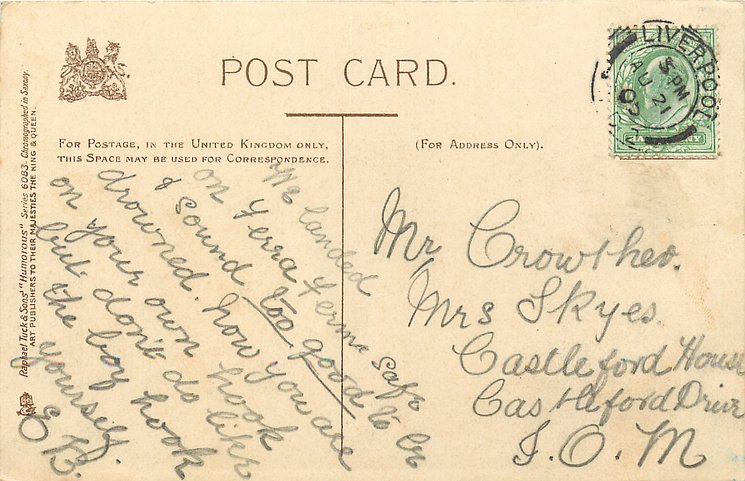 POST CARD.
FOR POSTAGE, IN THE UNITED KINGDOM ONLY,
THIS SPACE MAY BE USED FOR CORRESPONDENCE.
(FOR ADDRESS ONLY).
Raphael Tuck & Sons' "Humorous" Series 6083. Chromographed in Saxony.
ART PUBLISHERS TO THEIR MAJESTIES THE KING & QUEEN.
LIVERPOOL
5 PM
AU 21
We landed
on Terra Ferma safe
& sound too good to be
drowned. Now you are
on your own hook
but don't do like
the boy hook
yourself.
E B.
Mr Crowther.
Mrs Skyes.
Castleford House
Castleford Drive
I.O.M